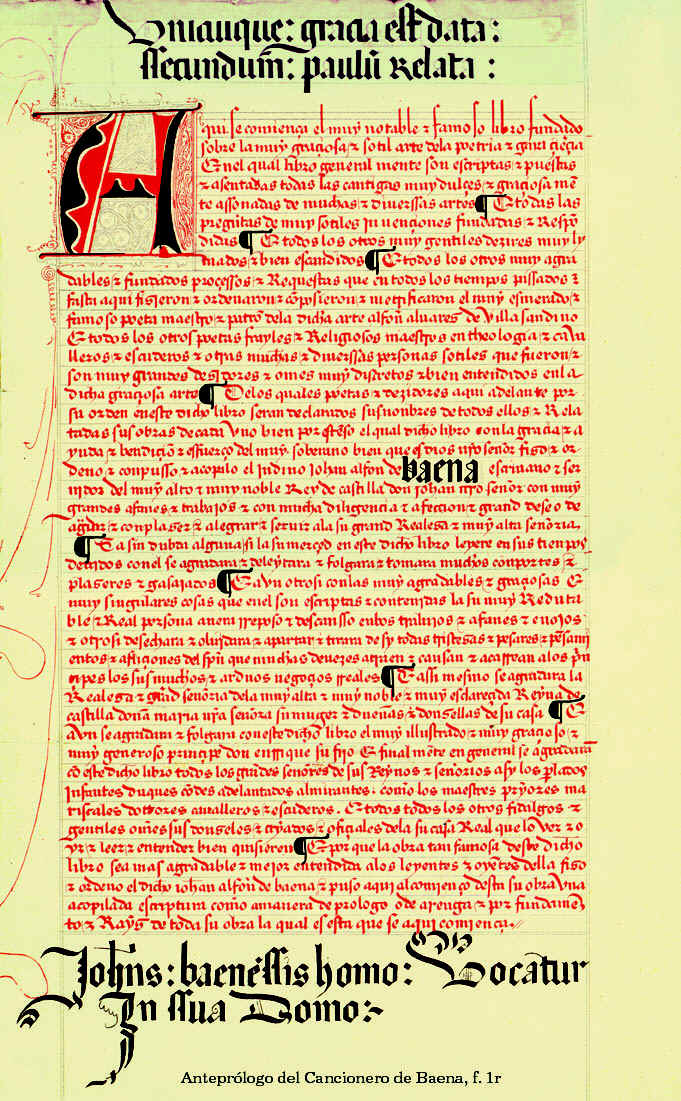 Unicuique: gracia est data:
ssecundum: paulũ Relata :
Aqui se comiença el muy notable ⁊ famoso libro fundado
sobre la muy graçiosa ⁊ sotil arte dela poetria ⁊ gaya çiençia
En el qual libro general mente son escriptas ⁊ puestas
⁊ asentadas todas las cantigas muy dulçes ⁊ graçiosa mẽ
te assonadas de muchas ⁊ diuerssas artes ¶ E todas las
preguntas de muy sotiles Inuençiones fundadas ⁊ Respõ
didas ¶ E todos los otros muy gentiles dezires muy ly
mados ⁊ bien escandidos ¶ E todos los otros muy agra
dables ⁊ fundados proçessos ⁊ Requestas que en todos los tiempos passados ⁊
fasta aqui fisieron ⁊ ordenaron ⁊ cõposieron ⁊ metrificaron el muy esmerado ⁊
famoso poeta maestro ⁊ patrõ dela dicha arte alfon aluares de villa sandino
E todos los otros poetas frayles ⁊ Religiosos maestros en theologia ⁊ caua
lleros ⁊ escuderos ⁊ otras muchas ⁊ diuerssas personas sotiles que fueron ⁊
son muy grandes desidores ⁊ omes muy discretos ⁊ bien entendidos en la
dicha graçiosa arte ¶ De los quales poetas ⁊ dezidores aqui adelante por
su orden eneste dicho libro seran declarados sus nonbres de todos ellos ⁊ Rela
tadas sus obras de cada vno bien por estẽso el qual dicho libro con la graçia ⁊ a
yuda ⁊ bendiçiõ ⁊ esfuerço del muy soberano bien que es dios nřo señor fiso ⁊ or
deno ⁊ conpusso ⁊ acopilo el Iudino Iohan alfon de baena escriuano ⁊ ser
uidor del muy alto ⁊ muy noble Rey de castilla don Iohan nřo señor con muy
grandes afanes ⁊ trabajos ⁊ con mucha diligençia ⁊ afeccion ⁊ grand deseo de
agradar ⁊ conplaser ⁊ alegrar ⁊ seruir ala su grand Realesa ⁊ muy alta señoria.
¶ Ca sin dubda alguna si la su merçed en este dicho libro leyere en sus tienpos
deuidos con el se agradara ⁊ deleytara ⁊ folgara ⁊ tomara muchos conportes ⁊
plaseres ⁊ gasajados ¶ E avn otrosi con las muy agradables ⁊ graçiosas E
muy singulares cosas que enel son escriptas ⁊ contenidas la su muy Reduta
ble ⁊ Real persona auera rreposo ⁊ descansso enlos trabajos ⁊ afanes ⁊ enojos
⁊ otrosi desechara ⁊ oluidara ⁊ apartar ⁊ tirara de sy todas tristesas ⁊ pesares ⁊ pẽsami
entos ⁊ afliçiones del spũ que muchas deveses atraen ⁊ causan ⁊ acarrean alos prĩ
çipes los sus muchos ⁊ arduos negoçios rreales ¶ E assi mesmo se agradara la
Realesa ⁊ grãd señoria dela muy alta ⁊ muy noble ⁊ muy esclareçida Reyna de
castilla doña maria nřa señora su muger ⁊ dueñas ⁊ donsellas de su casa ¶ E
avn se agradara ⁊ folgara con este dicho libro el muy illustrado ⁊ muy graçioso ⁊
muy generoso prinçipe don enrrique su fijo E final mẽte en general se agradaran
cõ este dicho libro todos los grãdes señores de sus Reynos ⁊ señorios asy los plados
Infantes duques cõdes adelantados almirantes. como los maestres priores ma
riscales dottores caualleros ⁊ escuderos. E todos todos los otros fidalgos ⁊
gentiles omes sus donseles ⁊ criados ⁊ ofiçiales dela su casa Real que lo ver ⁊ o
yr ⁊ leer ⁊ entender bien quisieren ¶ E por que la obra tan famosa deste dicho
libro sea mas agradable ⁊ mejor entendida alos leyentes ⁊ oyẽtes della fiso
⁊ ordeno el dicho iohan alfon de baena ⁊ puso aqui al comienço desta su obra vna
acopilada escriptura como amanera de prologo o de arenga ⁊ por fundamẽ
to ⁊ Rayz de toda su obra la qual es esta que se aqui comiença.
Johns: baenessis homo: Vocatur
In ssua Domo:-
Anteprólogo del Cancionero de Baena, f. 1r